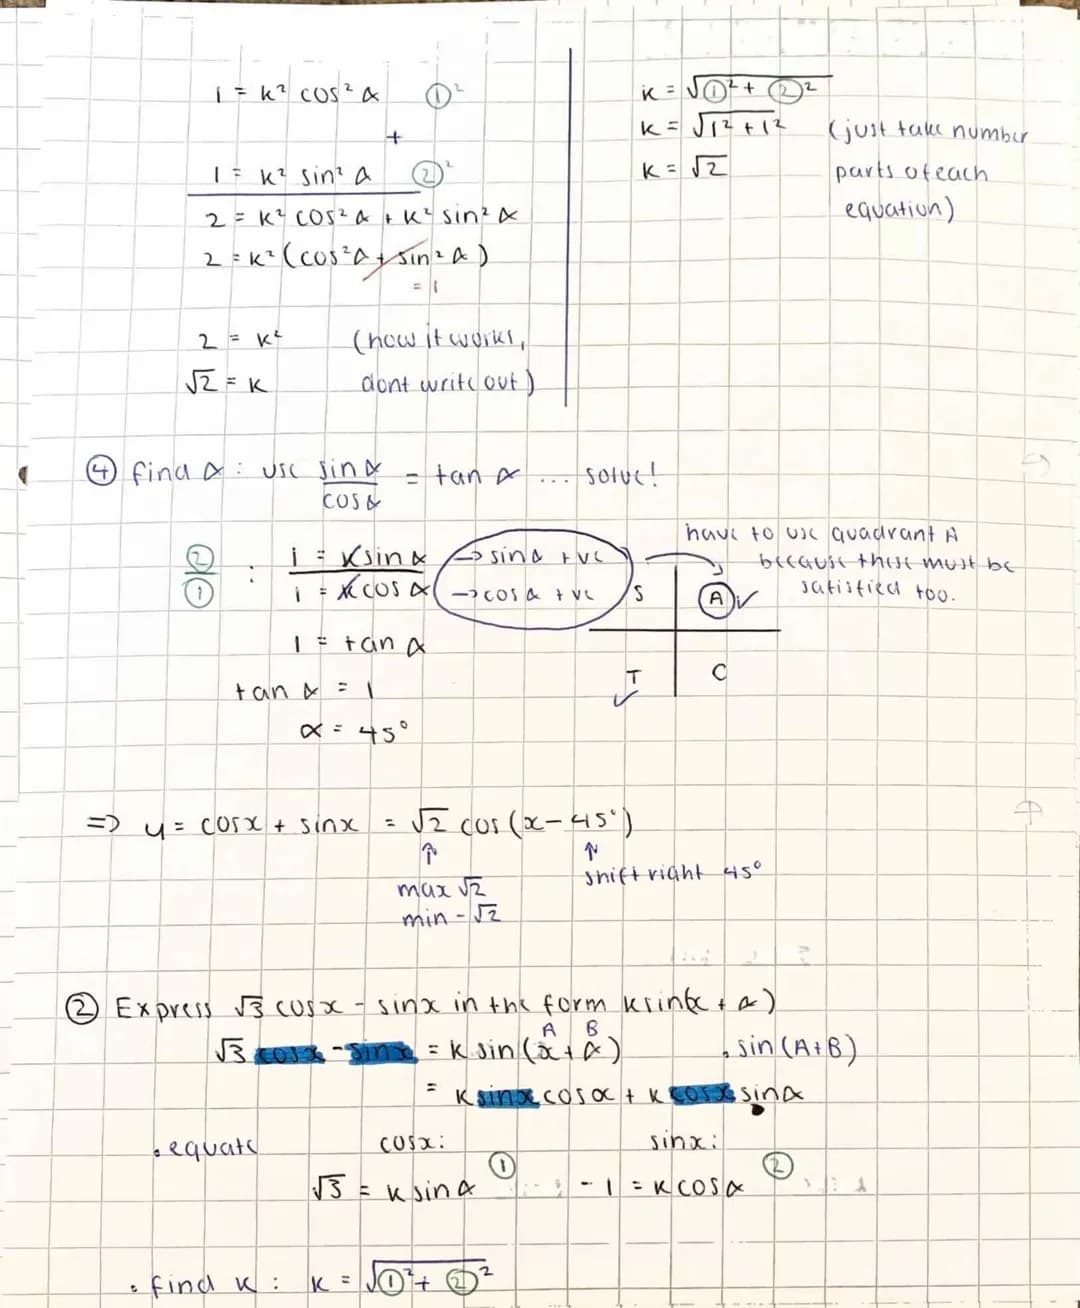 1 = k² cos² α ①²
+
1 = k² sin² α ②²
2 = k² cos² α + k² sin² α
2 = k² (cos² α + sin² α)
= 1
2 = k² (how it works,
√2 = k dont write out)
k = √①² + ②²
k = √1² + 1² (just take number
k = √2 parts of each
equation)
④ find α : use sin α / cos α = tan α ... solve!
②/① : 1 = k sin α → sin α +ve
1 = k cos α → cos α +ve
1 = tan α
tan α = 1
α = 45°
have to use quadrant A
because these must be
satisfied too.
S A ✓
T ✓ C
=> y = cos x + sin x = √2 cos (x - 45°)
↑ ↑
max √2 shift right 45°
min -√2
② Express √3 cos x - sin x in the form k sin(x + α)
A B
√3 cos x - sin x = k sin (x + α) . sin (A+B)
= k sin x cos α + k cos x sin α
. equate cos x: sin x:
√3 = k sin α ① -1 = k cos α ②
. find k : k = √①² + ②²